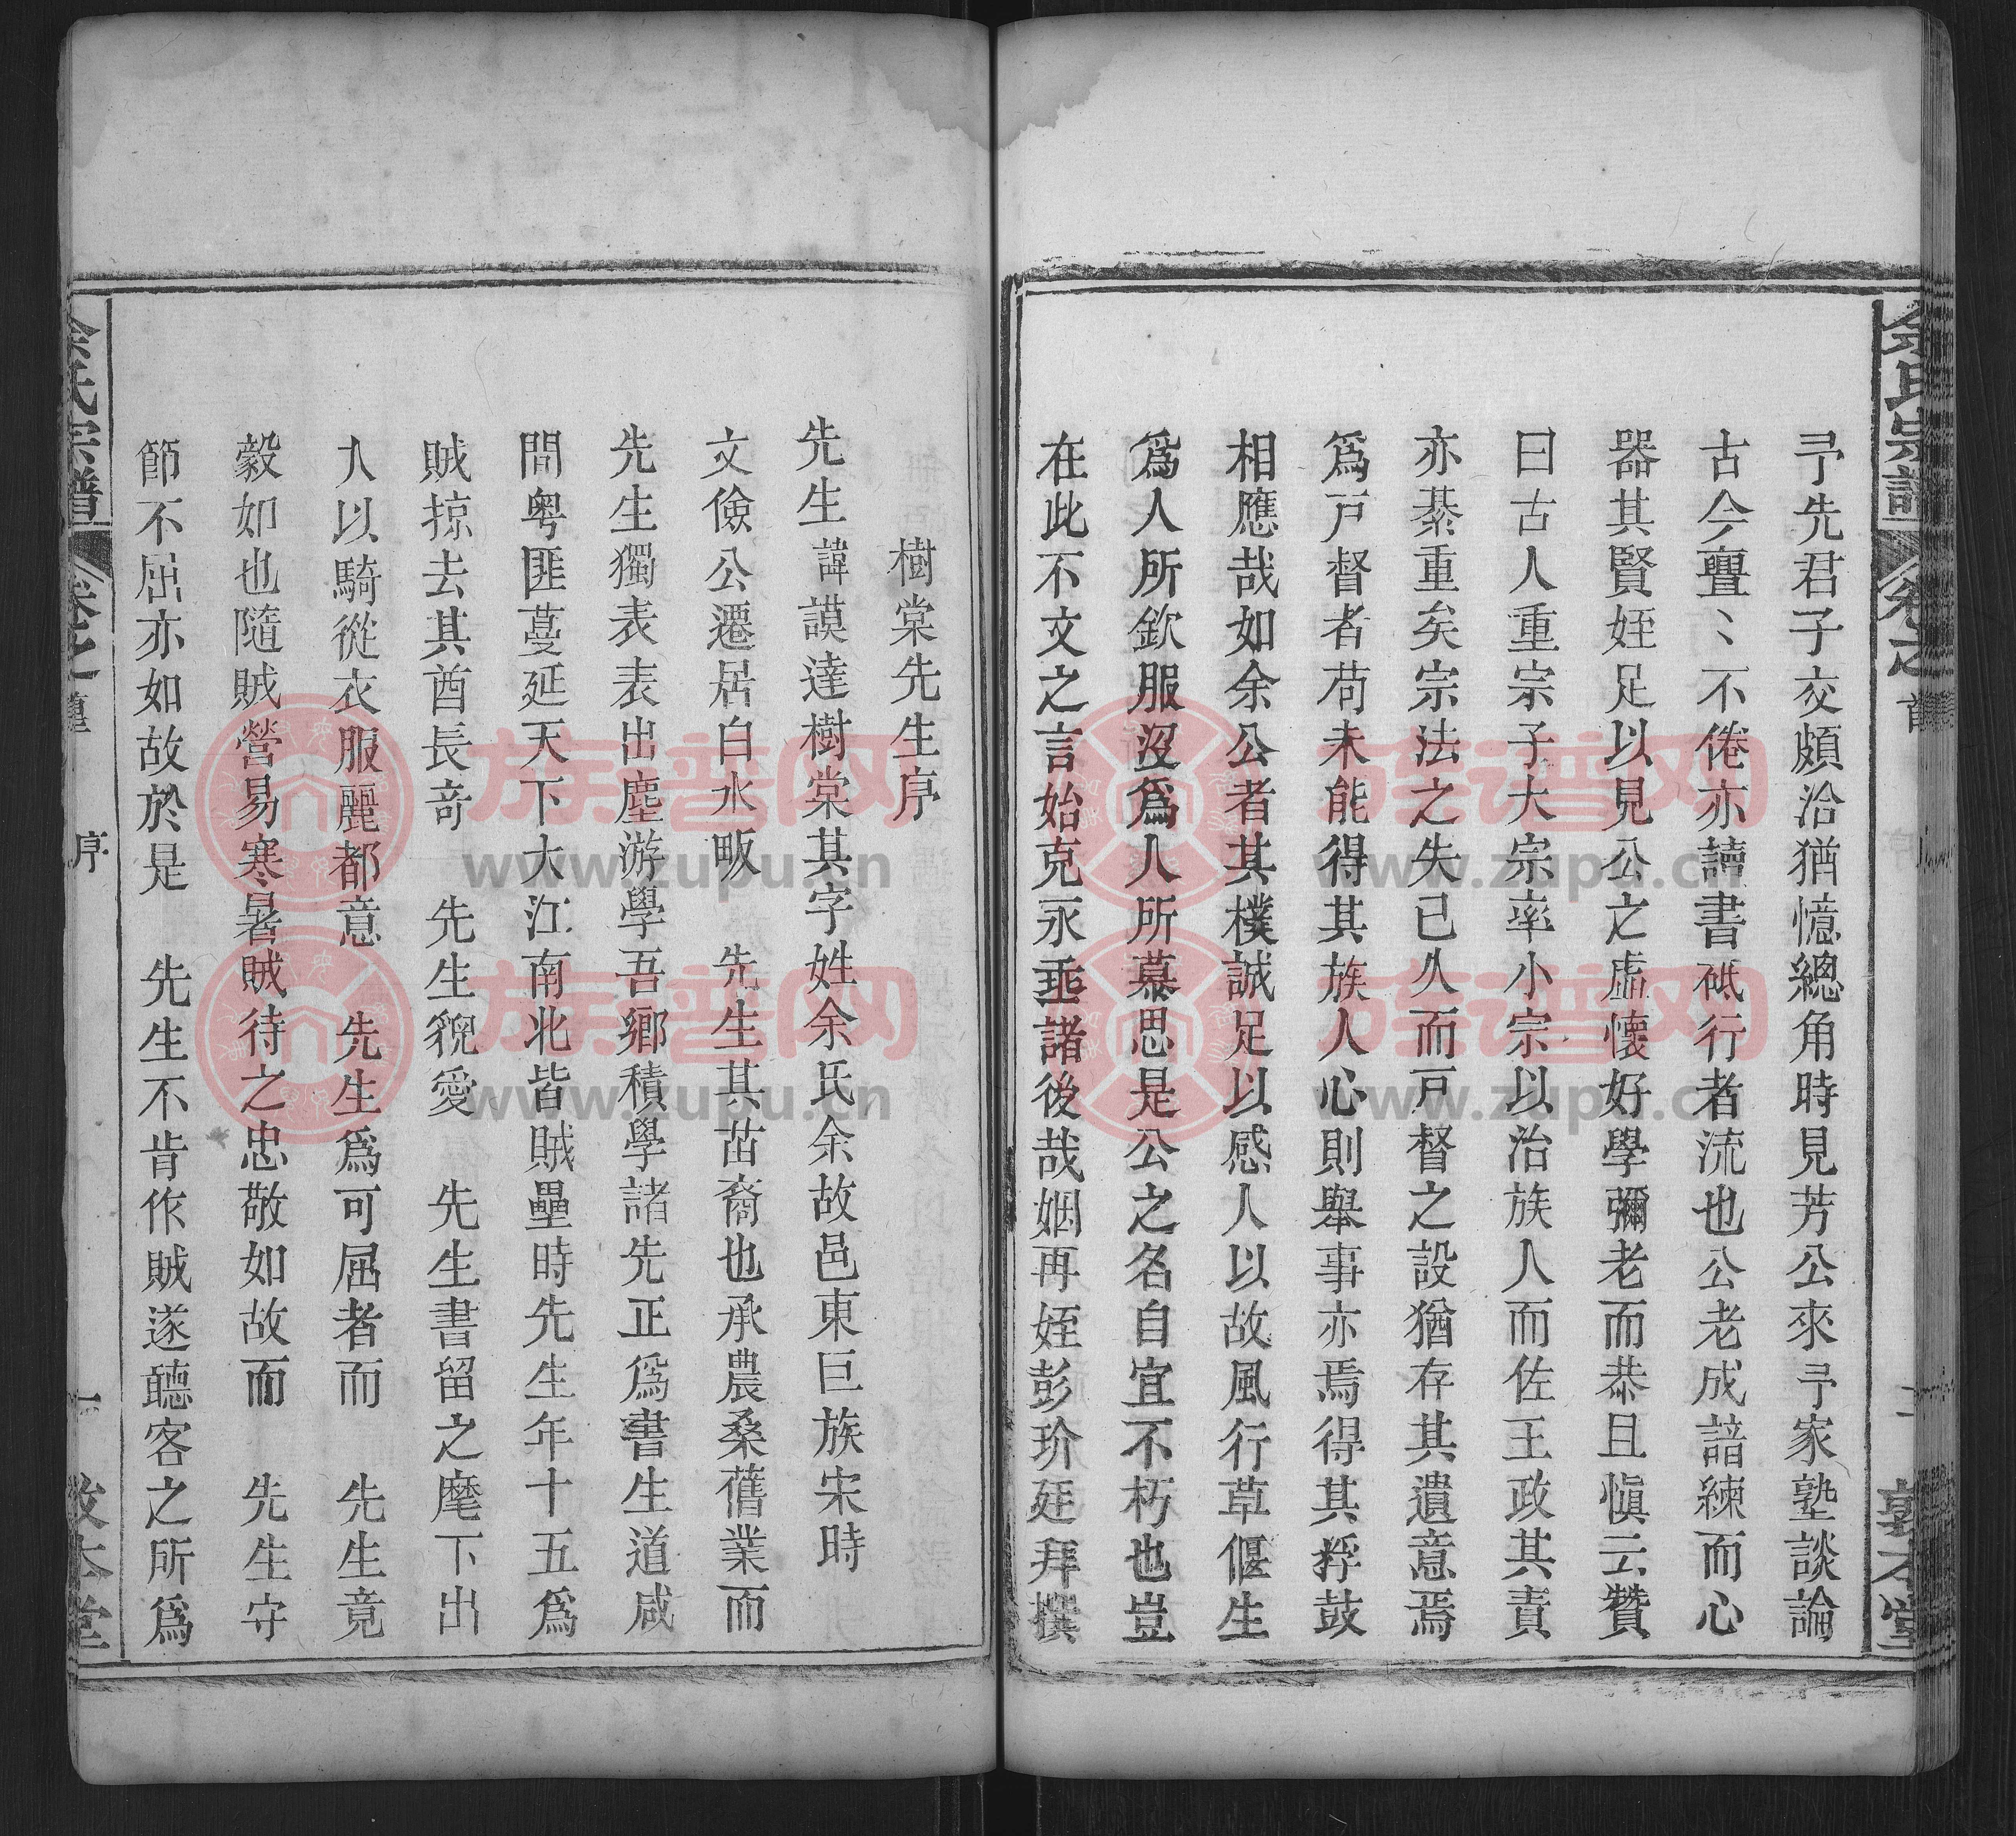 余氏宗譜
卷之
首
敦本堂
予先君子交頗洽猶憶總角時見芳公來予家塾談論
古今亹〻不倦亦讀書砥行者流也公老成諳練而心
器其賢姪足以見公之虛懷好學彌老而恭且慎云贊
曰古人重宗子大宗率小宗以治族人而佐王政其責
亦綦重矣宗法之失已久而戸督之設猶存其遺意焉
爲戸督者苟未能得其族人心則舉事亦焉得其桴鼓
相應哉如余公者其樸誠足以感人以故風行草偃生
爲人所欽服沒爲人所慕思是公之名自宜不朽也豈
在此不文之言始克永垂諸後哉姻再姪彭玠廷拜撰
樹棠先生序
先生諱謨達樹棠其字姓余氏余故邑東巨族宋時
文儉公遷居白水畈 先生其苗裔也承農桑舊業而
先生獨表表出塵游學吾鄉積學諸先正爲書生道咸
間粤匪蔓延天下大江南北皆賊壘時先生年十五爲
賊掠去其酋長竒 先生貌愛 先生書留之麾下出
入以騎從衣服麗都意 先生爲可屈者而 先生竟
毅如也隨賊營易寒暑賊待之忠敬如故而 先生守
節不屈亦如故於是 先生不肯作賊遂聽客之所爲
余氏宗譜
卷之
序
一
敦本堂
族谱网
www.zupu.cn
族谱网
www.zupu.cn
族谱网
www.zupu.cn
族谱网
www.zupu.cn